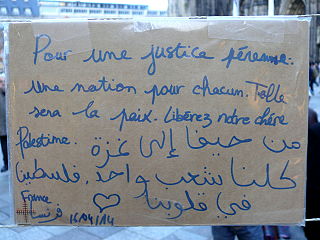 Pour une justice pérenne.
une nation pour chacun. Telle
sera la paix. Libérez notre chère
Palestine. من حيفا إلى غزة
كلنا شعب واحد. فلسطين
France في قلوبنا
فرنسا 16/04/14